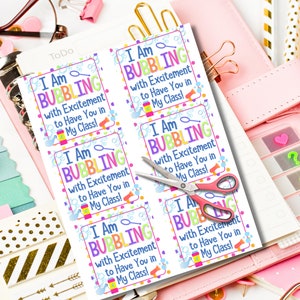 ToDo
I Am
BUBBLING
with Excitement
to Have You in
My Class!
I Am
BUBBLING
with Excitement
to Have You in
My Class!
I Am
BUBBLING
with Excitement
to Have You in
My Class!
I Am
BUBBLING
with Excitement
to Have You in
My Class!
I Am
BUBBLING
with Excitement
to Have You in
My Class!
I Am
BUBBLING
with Excitement
to Have You in
My Class!